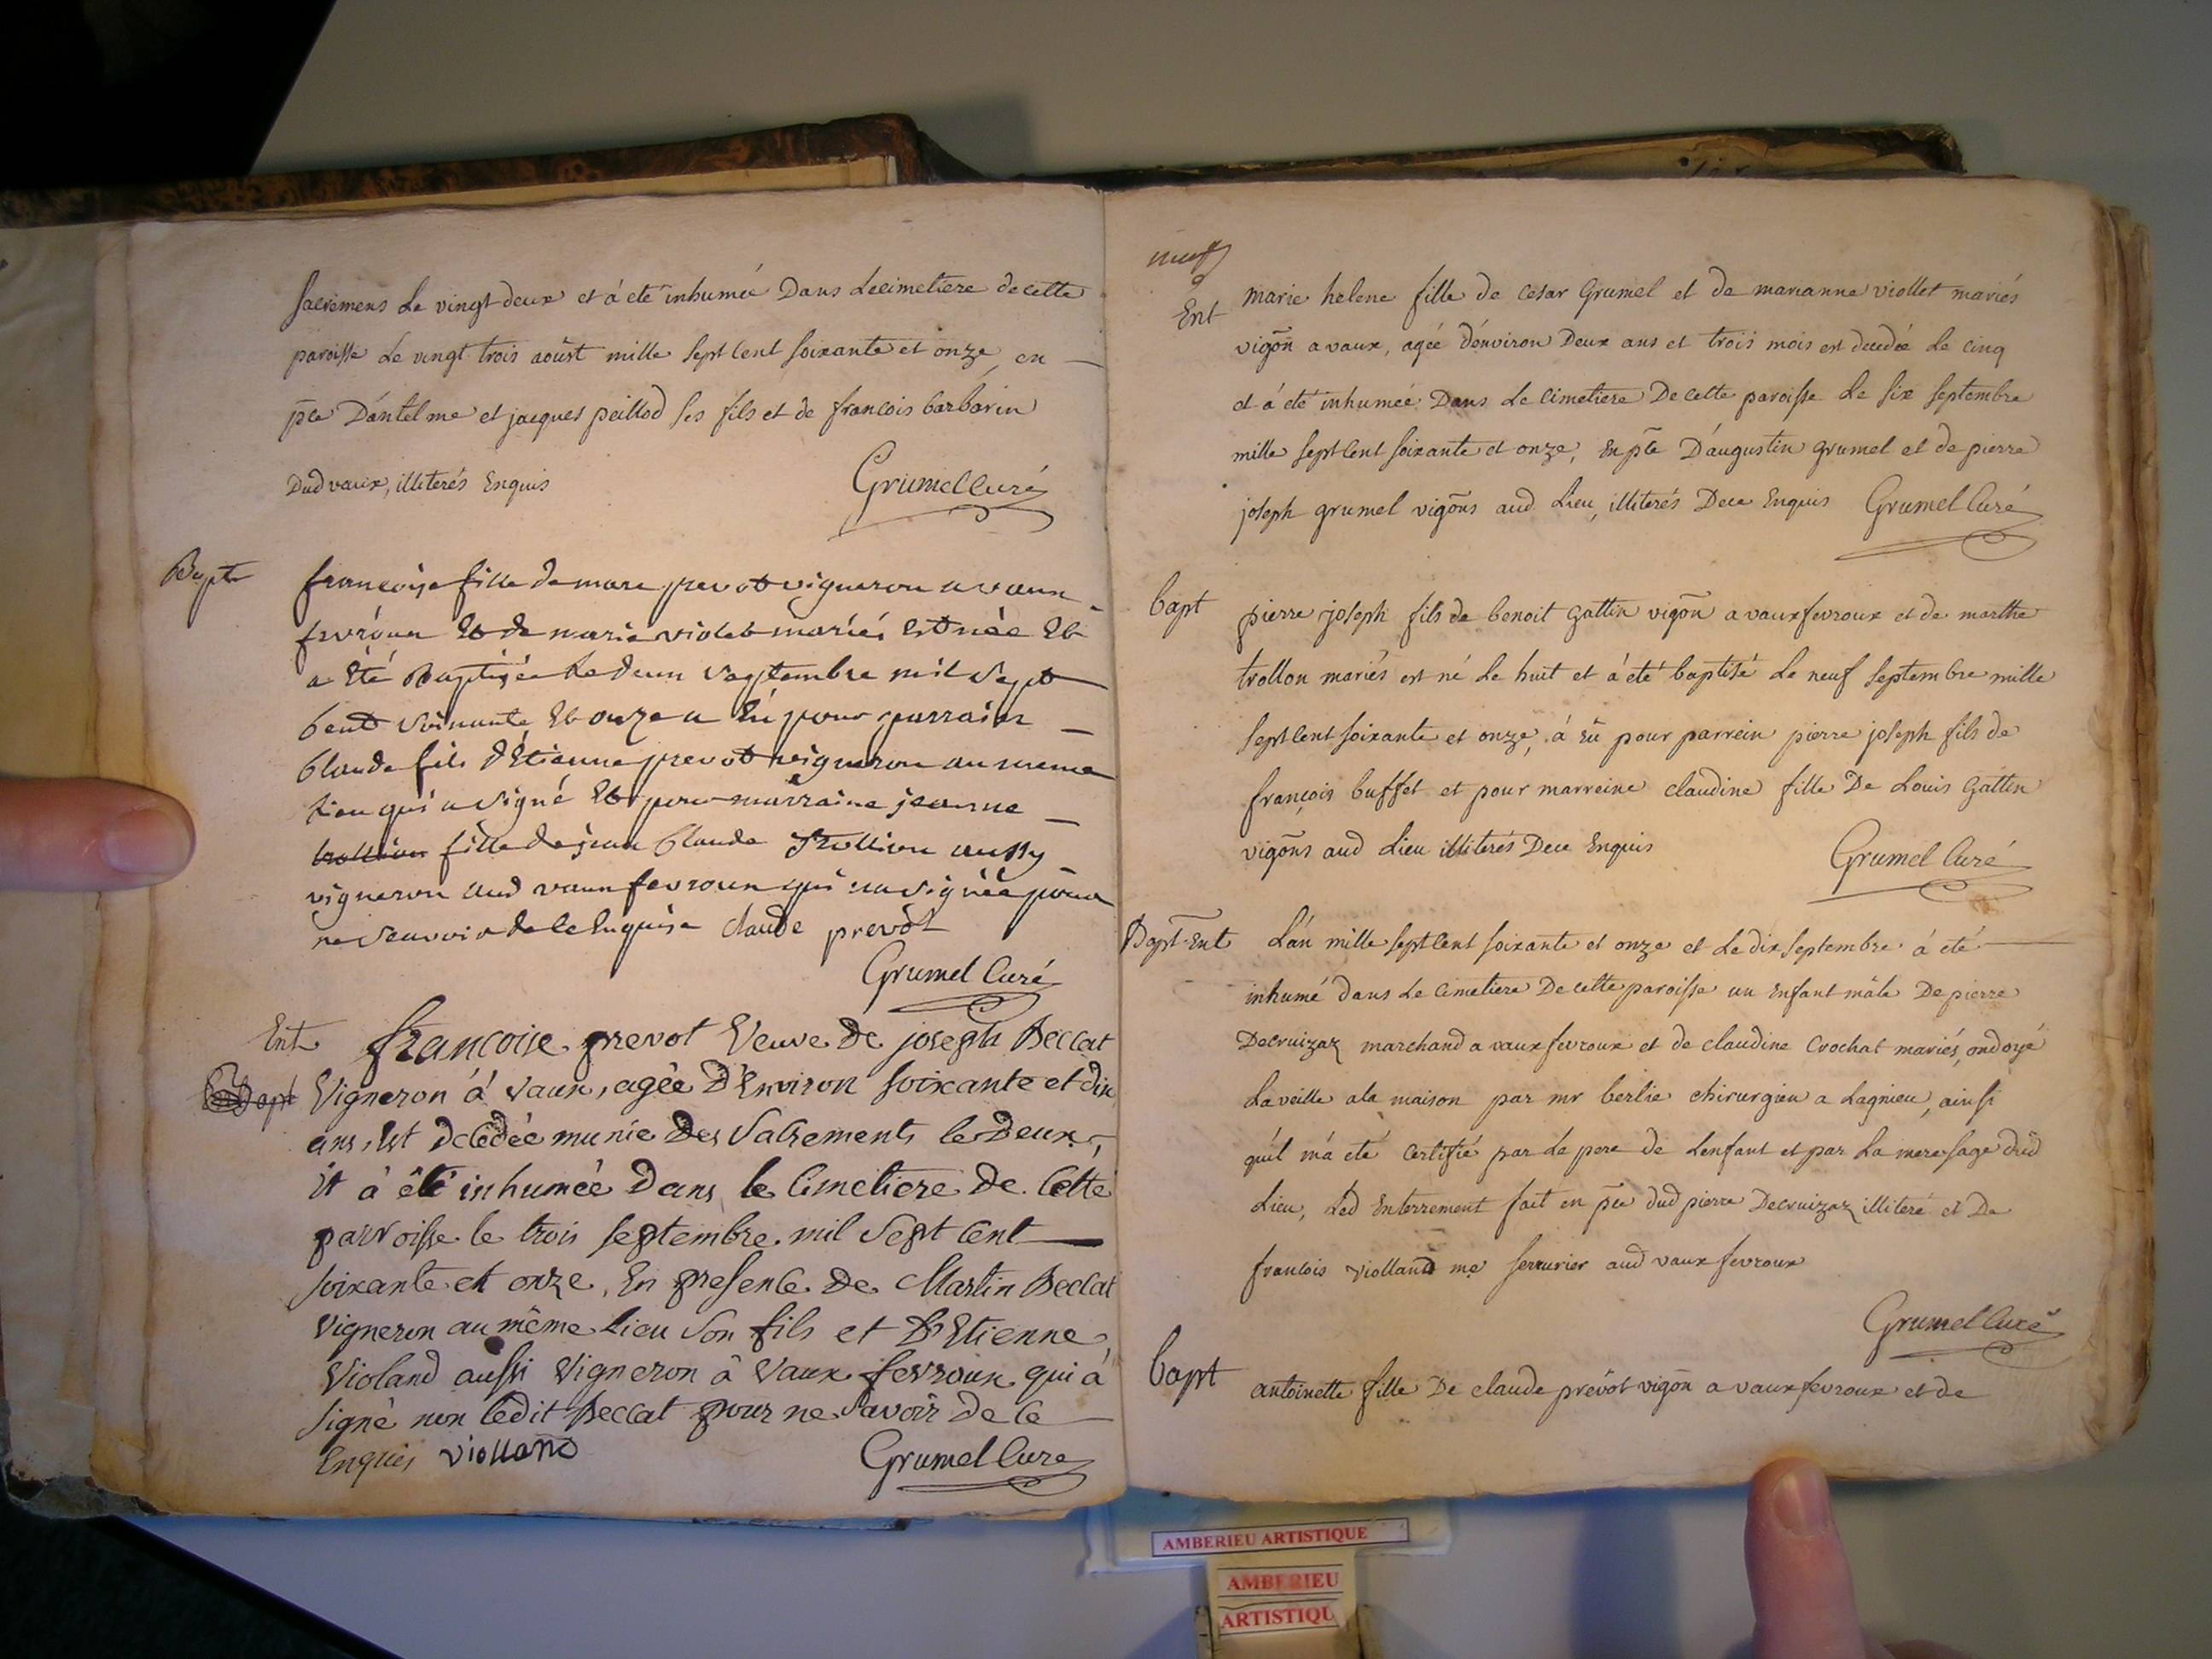 sacremens Le vingt deux et á eté inhumeé Dans Le cimetiere de cette
paroisse Le vingt trois aoust mille sept cent soixante et onze, en
p̄ce D'antelme et jacques peillod ses fils et de francois barbarin
Dud vaux, illiterés Enquis Grumel Curé
Bapt
francoise fille de marc prevot vigneron a vaux
fevroux Et de marie violet mariés Est née Et
a Eté Baptisée Le deux Septembre mil Sept
Cent Soixante Et onze a Eu pour parrain
Claude fils d'Etienne prevot vigneron au meme
Lieu qui a Signé Et pour marraine jeanne
trollion fille de jean Claude Trollion aussy
vigneron aud vaux fevroux qui na Signée pour
ne Scavoir de Ce Enquise claude prevôt
Grumel Curé
Ent
francoise prevot Veuve De joseph Beccat
Bapt
Vigneron á Vaux, agée D'Environ soixante et dix
ans, Est decédée munie Des Sacrements le Deux,
Et á été inhumeé Dans le Cimetiere De Cette
parroisse le trois septembre mil Sept Cent
soixante et onze, En presence De Martin Beccat
vigneron au même Lieu Son fils et D'Etienne
Violand aussi Vigneron á Vaux fevroux qui á
signé non ledit Beccat pour ne Savoir De Ce
Enquis violland Grumel Cure
neuf
9
Ent
marie helene fille de cesar Grumel et de marianne viollet mariés
vigōn a vaux, ageé d'environ Deux ans et trois mois est decedée Le cinq
et á eté inhumeé Dans Le Cimetiere De cette paroisse Le six septembre
mille sept Cent soixante et onze, En p̄ce D'augustin grumel et de pierre
joseph grumel vigōns aud Lieu, illiterés De ce Enquis Grumel Curé
bapt
pierre joseph fils de benoit Gattin vigōn a vaux fevroux et de marthe
trollon mariés est né Le huit et á eté baptisé Le neuf septembre mille
sept Cent soixante et onze, á Eû pour parrein pierre joseph fils de
françois buffet et pour marreine claudine fille De Louis Gattin
vigōns aud Lieu illiterés De ce Enquis Grumel Curé
Bapt-Ent
L'an mille sept Cent soixante et onze et Le dix septembre á eté
inhumé dans Le Cimetiere De cette paroisse un Enfant mâle De pierre
Decruizaz marchand a vaux fevroux et de claudine Crochat mariés, ondoyé
La veille a la maison par mr berlie chirurgien a Lagnieu, ainsi
qu'il m'á eté Certifié par Le pere de Lenfant et par La mere sage dud
Lieu, Led Enterrement fait en p̄ce dud pierre Decruizaz illiteré et De
francois violland me serrurier aud vaux fevroux
Grumel Curé
bapt
antoinette fille De claude prevôt vigōn a vaux fevroux et de
AMBERIEU ARTISTIQUE
AMBERIEU
ARTISTIQU